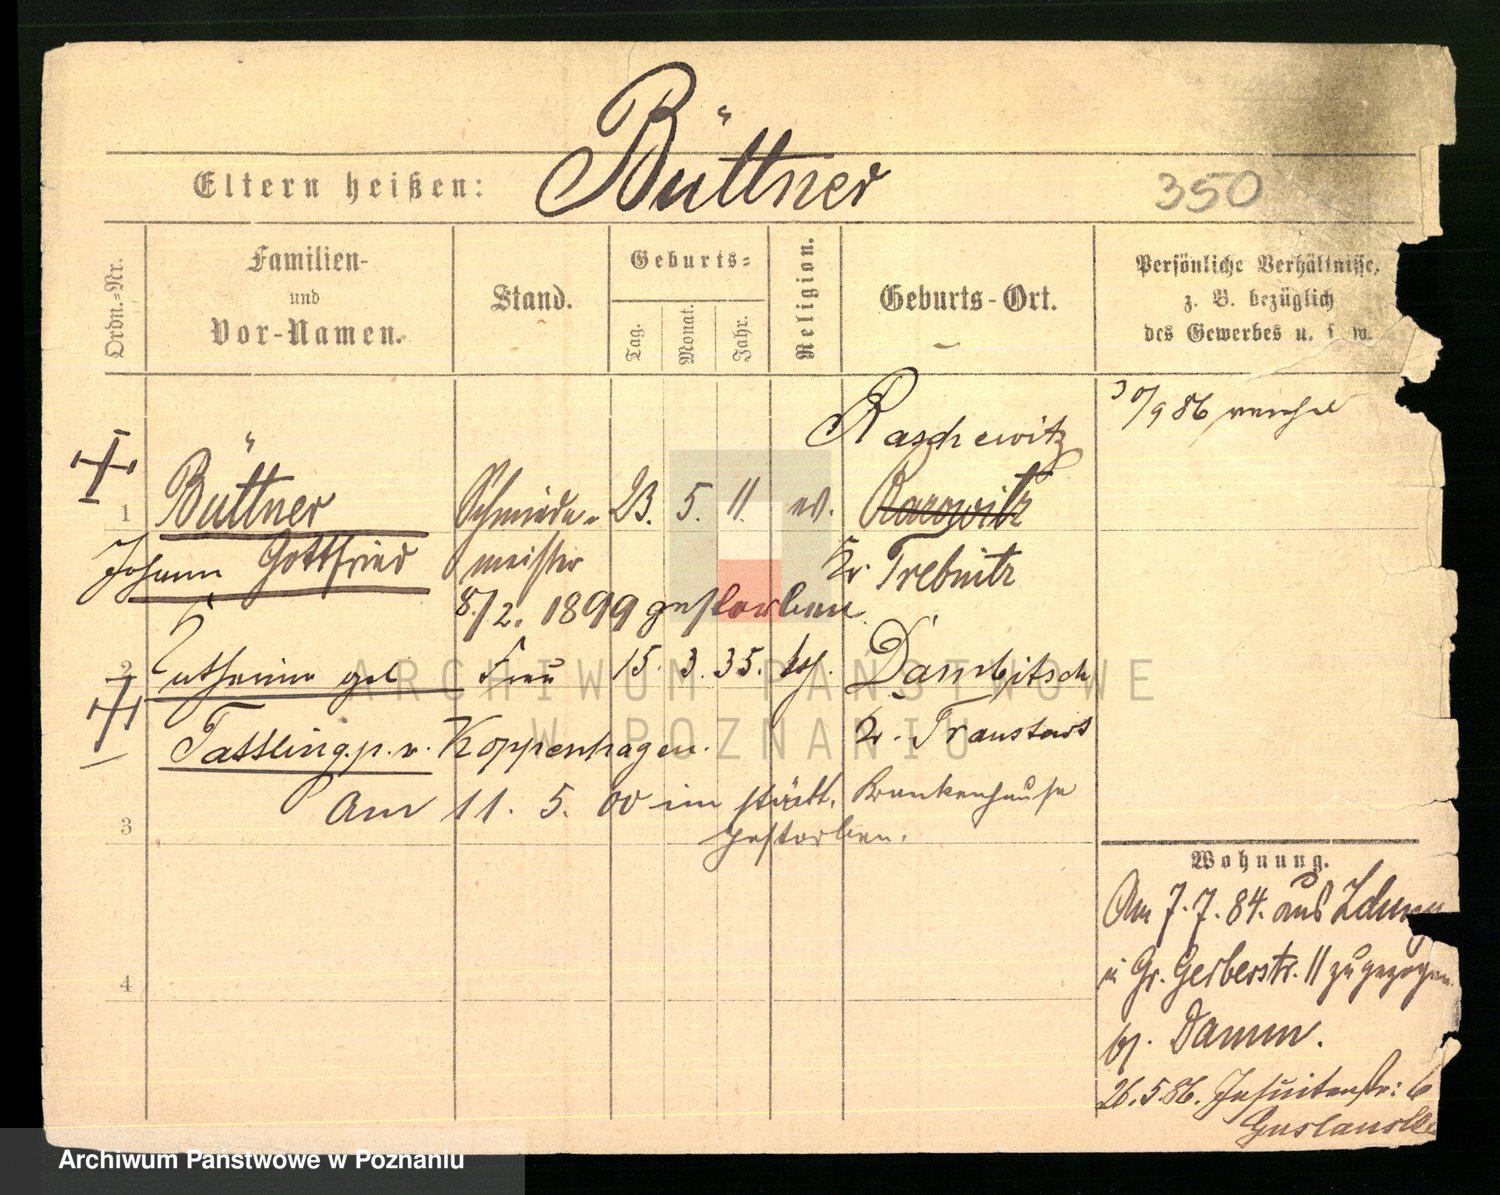 Büttner
Eltern heißen:
350
Ordn.-Nr.
Familien-
und
Vor-Namen.
Stand.
Geburts-
Tag.
Monat.
Jahr.
Religion.
Geburts-Ort.
Persönliche Verhältnisse,
z. B. bezüglich
des Gewerbes u. s. w.
30/9 86
Raschewitz
1 Büttner Schmiede- 23. 5. 11. ev. Rarowitz
Johann Gottfried meister Kr. Trebnitz
8./2. 1899 gestorben.
2 Catharine geb Frau 15. 3. 35. Dambitsch
Tassling.p.v. Koppenhagen. Kr. Fraustadt
Am 11. 5. 00 im städt. Krankenhause
gestorben.
3
4
Wohnung.
Am 7.7.84. aus Zduny
n Gr. Gerberstr. 11 zugezogen
bj. Damm.
26.5.86. Jesuitenstr: 6
ARCHIWUM PAŃSTWOWE
W POZNANIU
Archiwum Państwowe w Poznaniu